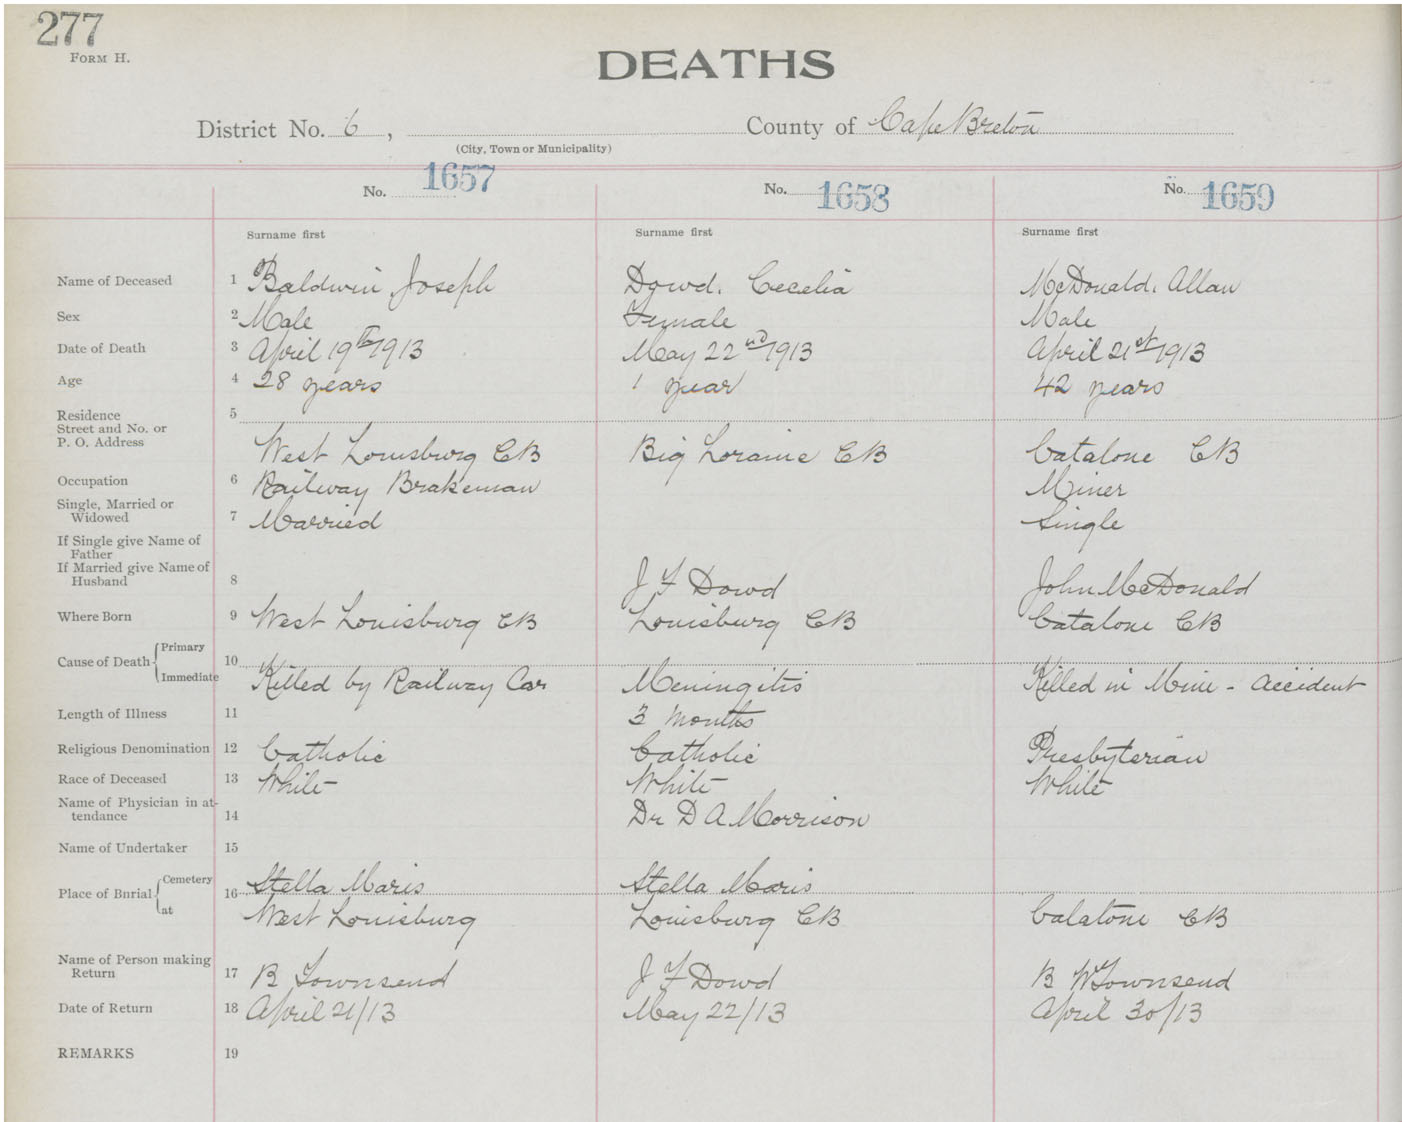 277
FORM H.
DEATHS
District No. 6, County of Cape Breton
(City, Town or Municipality)
No. 1657 No. 1658 No. 1659
Surname first Surname first Surname first
Name of Deceased 1 Baldwin Joseph Dowd. Cecelia McDonald. Allan
Sex 2 Male Female Male
Date of Death 3 April 19th 1913 May 22nd 1913 April 21st 1913
Age 4 28 years 1 year 42 years
Residence 5
Street and No. or
P. O. Address West Louisburg CB Big Loraine CB Catalone CB
Occupation 6 Railway Brakeman Miner
Single, Married or
Widowed 7 Married Single
If Single give Name of
Father
If Married give Name of
Husband 8 J F Dowd John McDonald
Where Born 9 West Louisburg CB Louisburg CB Catalone CB
Cause of Death Primary 10
Immediate Killed by Railway Car Meningitis Killed in Mine - accident
Length of Illness 11 3 months
Religious Denomination 12 Catholic Catholic Presbyterian
Race of Deceased 13 White White White
Name of Physician in at-
tendance 14 Dr D A Morrison
Name of Undertaker 15
Place of Burial Cemetery 16 Stella Maris Stella Maris
at West Louisburg Louisburg CB Catalone CB
Name of Person making
Return 17 B Townsend J F Dowd B W Townsend
Date of Return 18 April 21/13 May 22/13 April 30/13
REMARKS 19